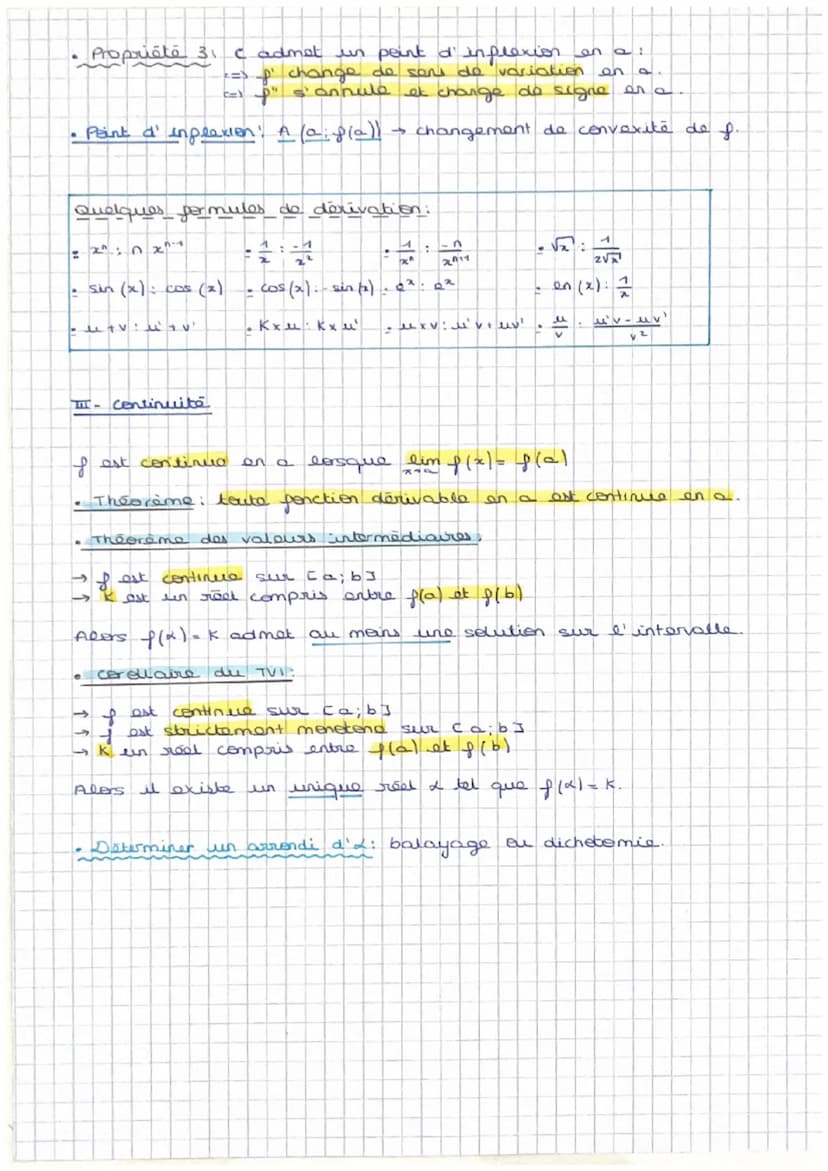 • Propriété 3: C admet un point d'inflexion en a :
<=> f' change de sens de variation en a.
<=> f" s'annule et change de signe en a.
• Point d'inflexion: A (a; f(a)) → changement de convexité de f.
Quelques formules de dérivation:
• xⁿ : n xⁿ⁻¹ • 1/x : -1/x² • 1/xⁿ : -n/xⁿ⁺¹ • √x : 1/2√x
• sin (x) : cos (x) • cos (x) : - sin (x) • eˣ : eˣ • ln (x) : 1/x
• u + v : u' + v' • K x u : K x u' • u x v : u'v + uv' • u/v : u'v - uv'/v²
III - Continuité
f est continue en a lorsque lim x→a f(x) = f(a)
• Théorème : toute fonction dérivable en a est continue en a.
• Théorème des valeurs intermédiaires:
→ f est continue sur [a;b]
→ K est un réel compris entre f(a) et f(b)
Alors f(x) = K admet au moins une solution sur l'intervalle.
• Corollaire du TVI:
→ f est continue sur [a;b]
→ f est strictement monotone sur [a;b]
→ K un réel compris entre f(a) et f(b)
Alors il existe un unique réel α tel que f(α) = K.
• Déterminer un arrondi d'α : balayage ou dichotomie.